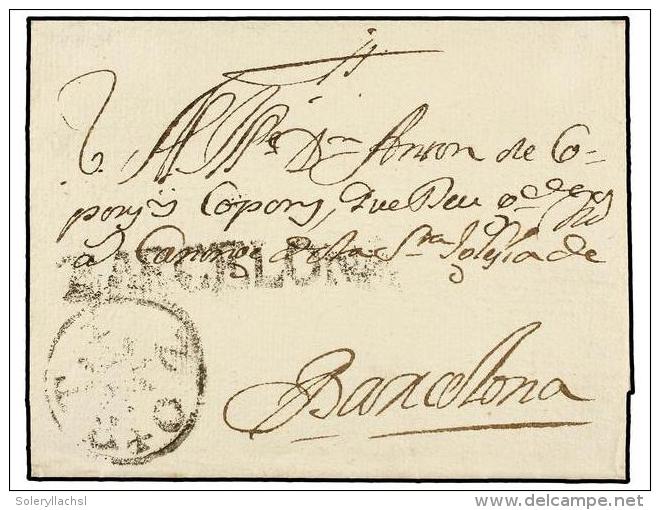 Al Ille Dn Anton de Co-
pons y Copons, que Deu gde
a Canonge de la Sta Iglesia de
BARCELONA
Barcelona
Soleryllachsl
© delcampe.net